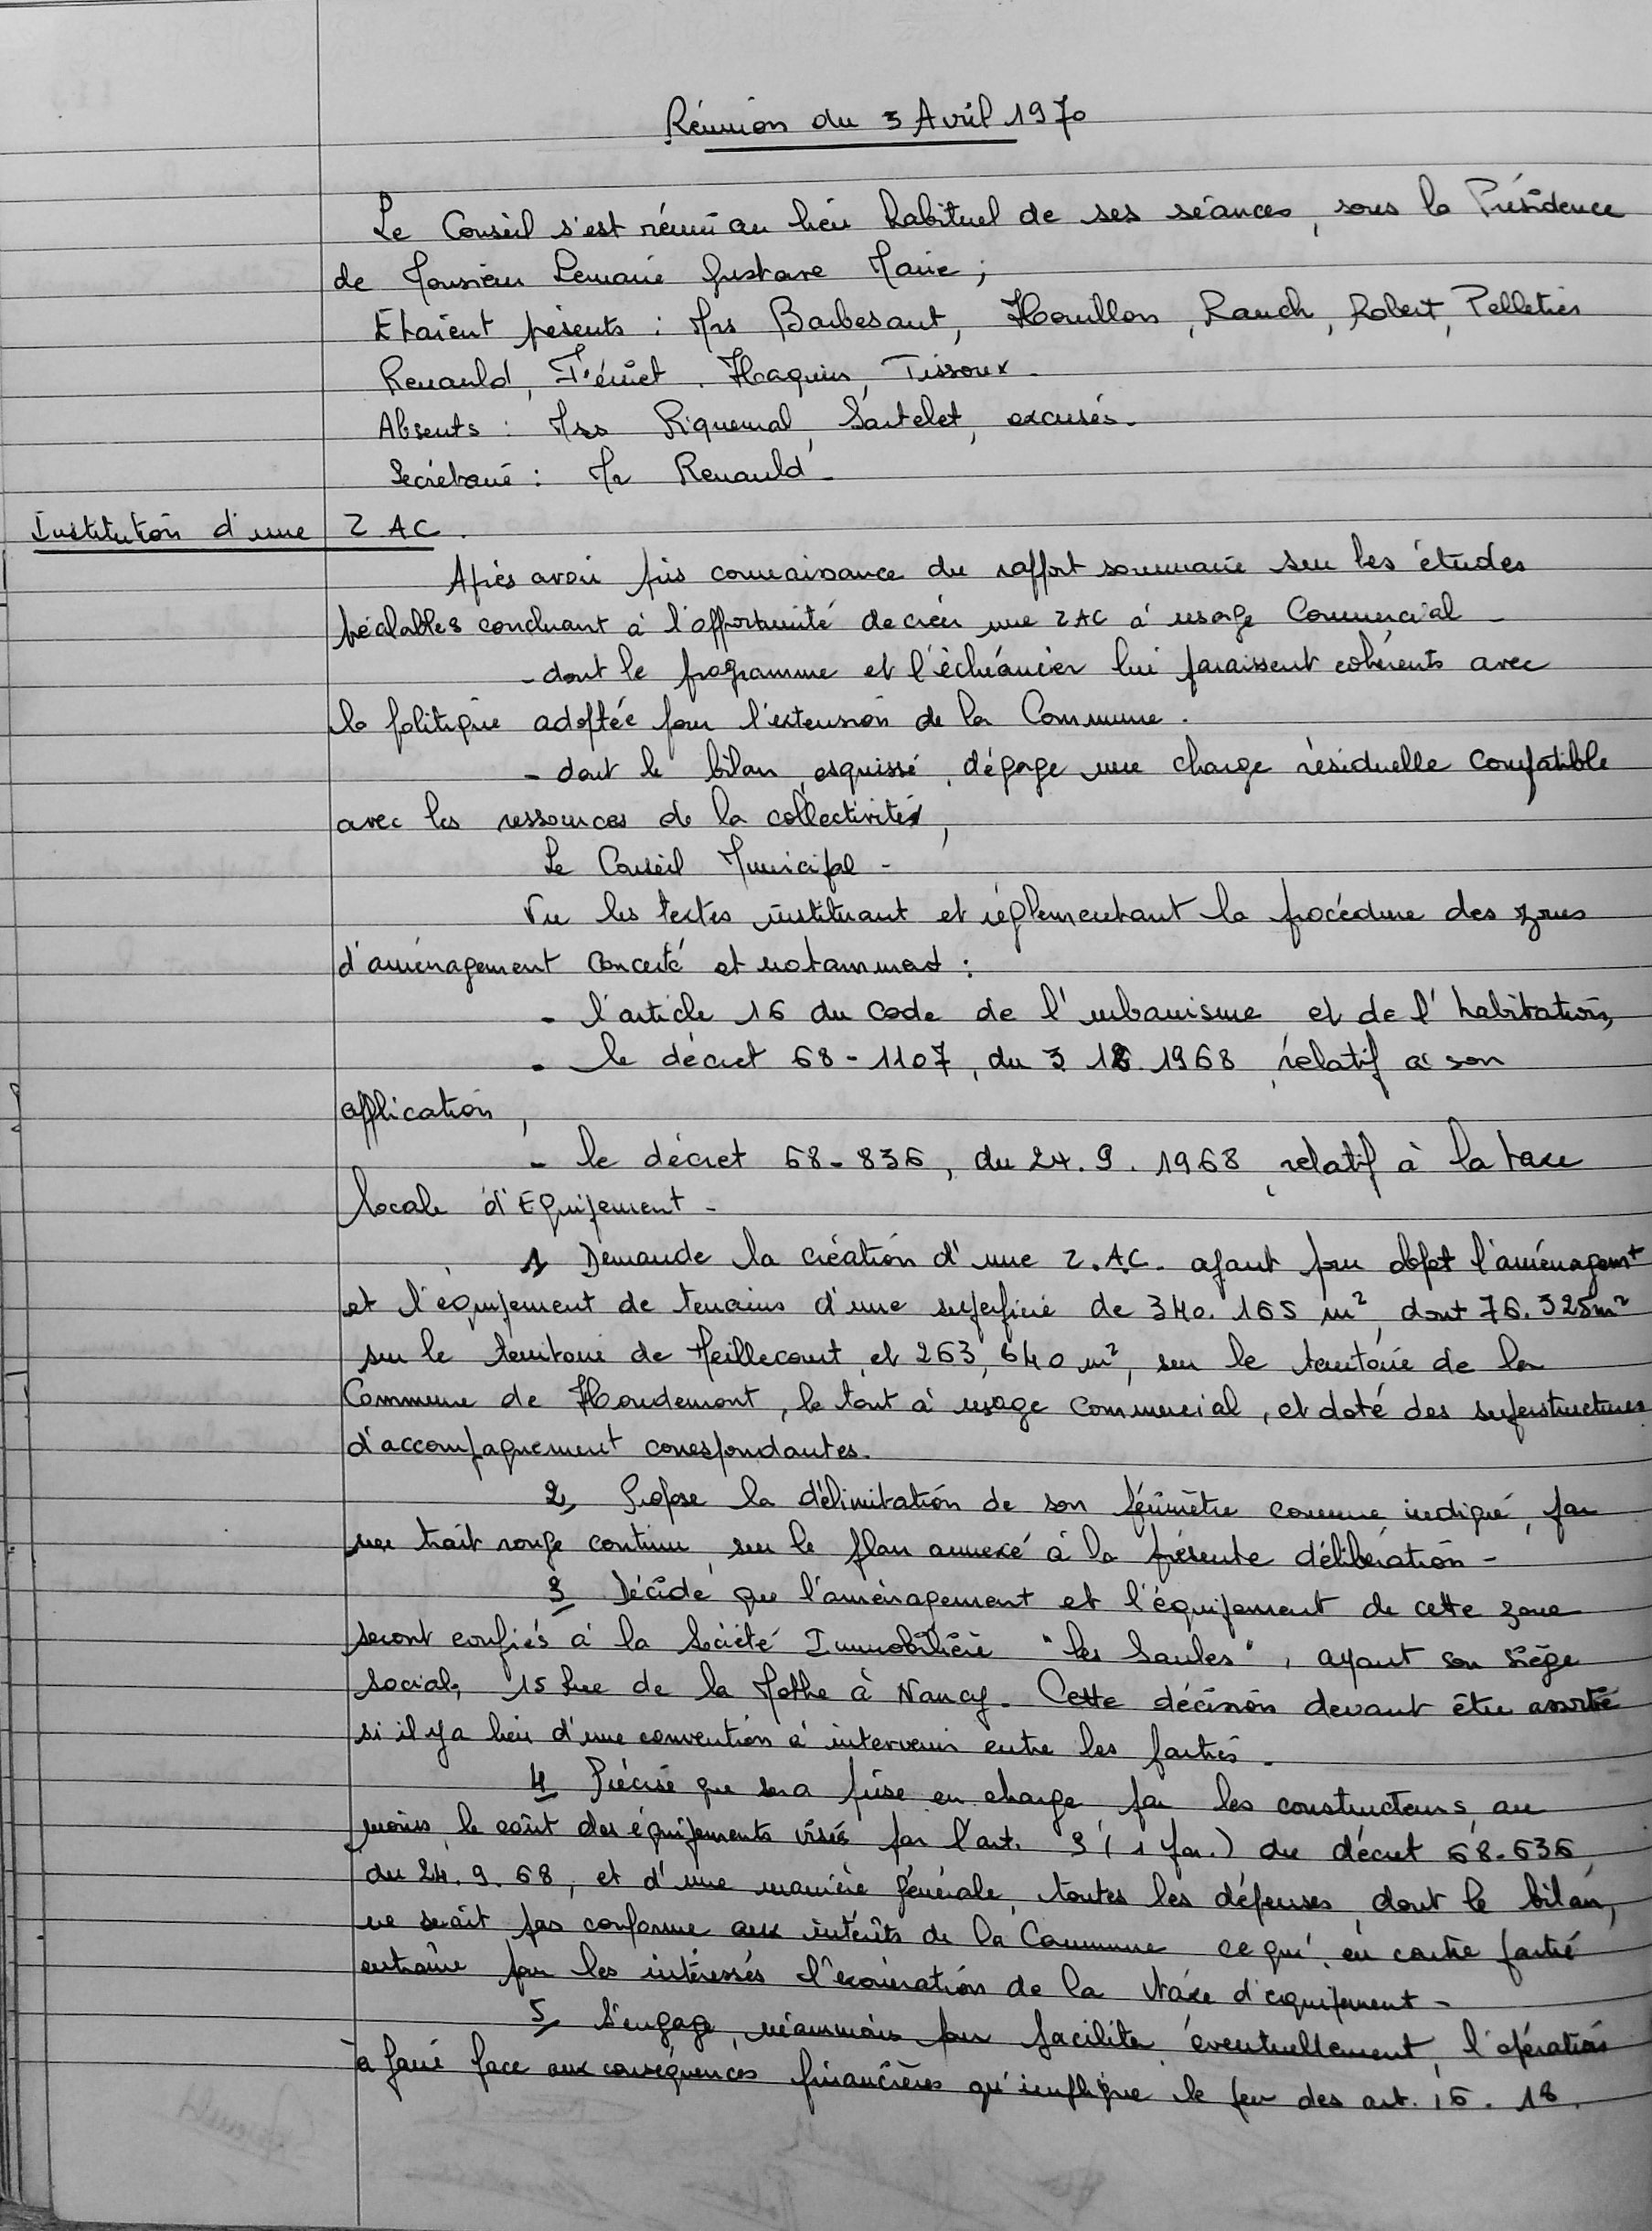 Réunion du 3 Avril 1970
Le Conseil s'est réuni au lieu habituel de ses séances, sous la Présidence
de Monsieur Lemaire Gustave Maire ;
Etaient présents : Mrs Barbesant, Houillon, Rauch, Robert, Pelletier
Renauld, Fériet, Haquin, Tissoux.
Absents : Mrs Riquemal, Sartelet, excusés.
Secrétaire : Mr Renauld.
Institution d'une Z AC.
Après avoir pris connaissance du rapport sommaire sur les études
préalables concluant à l'opportunité de créer une ZAC à usage Commercial -
- dont le programme et l'échéancier lui paraissent cohérents avec
la politique adoptée pour l'extension de la Commune.
- dont le bilan, esquissé, dégage une charge résiduelle compatible
avec les ressources de la collectivité,
Le Conseil Municipal -
Vu les textes instituant et réglementant la procédure des zones
d'aménagement concerté et notamment :
- l'article 16 du code de l'urbanisme et de l'habitation,
- le décret 68-1107, du 3 12 1968 relatif à son
application,
- le décret 68-836, du 24.9.1968, relatif à la taxe
locale d'Equipement -
1, Demande la création d'une Z.A.C. ayant pour objet l'aménagemt
et l'équipement de terrains d'une superficie de 340.165 m², dont 76.525 m²
sur le territoire de Heillecourt, et 263,640 m², sur le territoire de la
Commune de Houdemont, le tout à usage commercial, et doté des superstructures
d'accompagnement correspondantes.
2, Propose la délimitation de son périmètre comme indiqué, par
un trait rouge continu, sur le plan annexé à la présente délibération -
3 Décide que l'aménagement et l'équipement de cette zone
seront confiés à la Société Immobilière "les Saules", ayant son siège
social, 15 Rue de la Mothe à Nancy. Cette décision devant être assortie
si il y a lieu d'une convention à intervenir entre les parties.
4 Précise que sera prise en charge par les constructeurs au
moins le coût des équipements visés par l'art. 3 (1 par.) du décret 68-636
du 24.9.68, et d'une manière générale, toutes les dépenses, dont le bilan,
ne serait pas conforme aux intérêts de la Commune ce qui, en contre partie
entraîne pour les intéressés l'exonération de la taxe d'équipement -
5, S'engage, néanmoins pour faciliter éventuellement, l'opération
à faire face aux conséquences financières qu'implique le jeu des art. 16. 18.